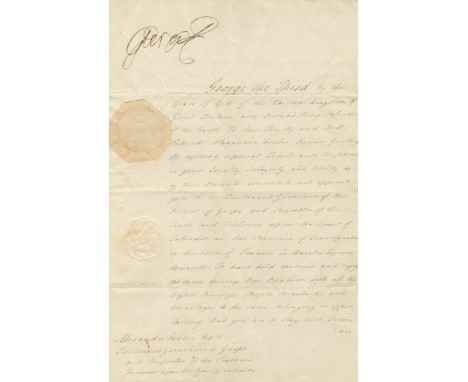 George R
George the Third by the
Grace of God of the United Kingdom of
Great Britain and Ireland King Defender
of the Faith To Our Trusty and Well
Beloved Alexander Forbes Esquire Greeting
We reposing especial Trust and Confidence
in your Loyalty Integrity and Ability do
by these Presents constitute and appoint
you to be Lieutenant Governor of the
District of Gaspé and Inspector of the
Trade and Fisheries upon the Coast of
Labrador in Our Province of Lower Canada
in the room of Francis Le Maistre Esquire
deceased To have hold exercise and enjoy
the same during Our Pleasure with all the
Rights Privileges Profits Perquisites and
Advantages to the same belonging or apper-
taining And you are to obey such Orders
and
Alexander Forbes Esqre
Lieutenant Governor of Gaspé
and Inspector of the Trade and
Fisheries upon the Coast of Labrador